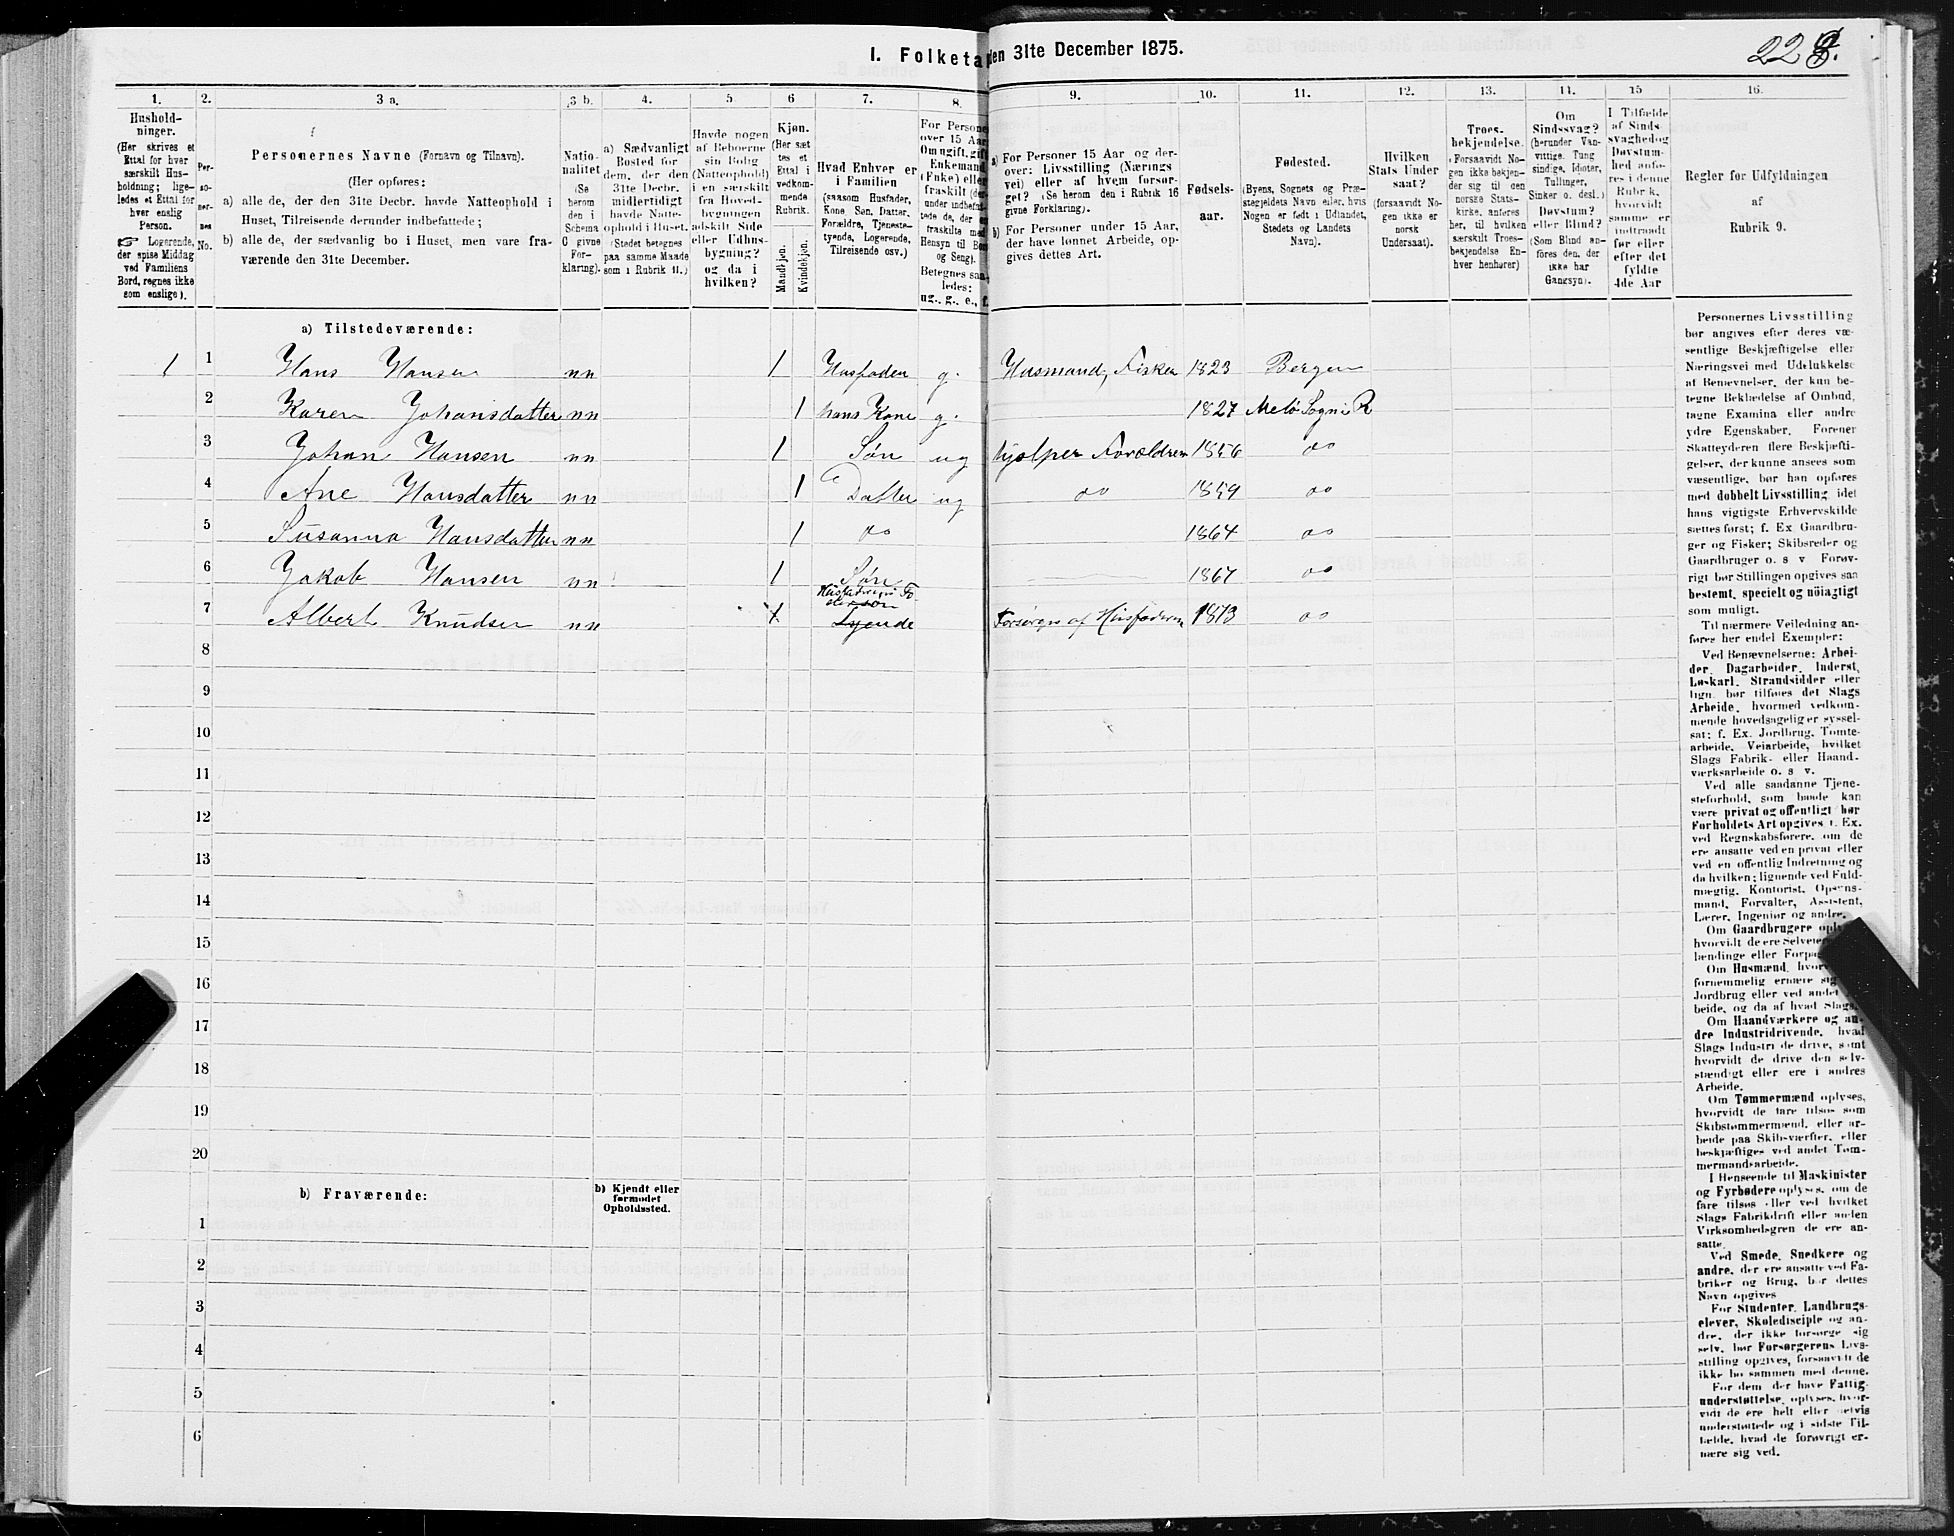 I. Folketæ
den 31te December 1875.
228.
1.
2.
3 a.
3 b.
4.
5
6
7.
8.
9.
10.
11.
12.
13.
14.
15
16.
Hushold-
ninger.
(Her skrives et
Ettal for hver
særskilt Hus-
holdning; lige-
ledes et Ettal for
hver enslig
Person.
☞ Logerende,
der spise Middag
ved Familiens
Bord, regnes ikke
som enslige).
Per-
so-
ner-
nes
No.
Personernes Navne (Fornavn og Tilnavn).
(Her opføres:
a) alle de, der den 31te Decbr. havde Natteophold i
Huset, Tilreisende derunder indbefattede;
b) alle de, der sædvanlig bo i Huset, men vare fra-
værende den 31te December.
Natio-
nalitet
(Se
herom
den i
Schema
C givne
For-
klaring).
a) Sædvanligt
Bosted for
dem, der den
31te Decbr.
midlertidigt
havde Natte-
ophold i Huset.
(Stedet betegnes
paa samme Maade
som i Rubrik 11.)
Havde nogen
af Beboerne
sin Bolig
(Natteophold)
i en særskilt
fra Hoved-
bygningen
adskilt Side
eller Udhus-
bygning?
og da i
hvilken?
Kjøn.
(Her sæt
tes et
Ettal i
vedkom-
mende
Rubrik.
Mandkjøn.
Kvindekjøn.
Hvad Enhver er
i Familien
(saasom Husfader,
Kone Søn, Datter,
Forældre, Tjeneste-
tyende, Logerende,
Tilreisende osv.)
For Persone
over 15 Aar
Om ugift, gift
Enkemand
(Enke) eller
fraskilt (der-
under indbefat-
tede de, der er
fraskilte med
Hensyn til Bor
og Seng).
Betegnes saa-
ledes:
ug., g., e., f.
a) For Personer 15 Aar og der-
over: Livsstilling (Nærings
vei) eller af hvem forsør-
get? (Se herom den i Rubrik 16
givne Forklaring).
b) For Personer under 15 Aar,
der have lønnet Arbeide, op-
gives dettes Art.
Fødsels-
aar.
Fødested.
(Byens, Sognets og Præ-
stegjeldets Navn eller, hvis
Nogen er født i Udlandet,
Stedets og Landets
Navn).
Hvilken
Stats Under
saat?
(forsaavidt No-
gen ikke er
norsk
Undersaat).
Troes-
bekjendelse.
(Forsaavidt No-
gen ikke bekjen-
der sig til den
norske Stats-
kirke, anføres
her, til hvilken
særskilt Troes-
bekjendelse En-
hver henhører)
Om
Sindssvag?
(herunder Van-
vittige, Tung
sindige, Idioter,
Tullinger,
Sinker o. desl.)
Døvstum?
eller Blind?
(Som Blind an-
føres den, der
ikke har
Gangsyn).
I Tilfælde
af Sinds-
svaghed og
Døvstum-
hed anfø-
res i denne
Rubrik,
hvorvidt
samme er
indtraadt
før eller
efter det
fyldte
4de Aar
Regler for Udfyldningen
af
Rubrik 9.
a) Tilstedeværende:
1 1 Hans Hansen nn 1 Husfader g. Husmand, Fisker 1823 Bergen
2 Karen Johansdatter nn 1 hans Kone g. 1827 Melö Sogn R
3 Johan Hansen nn 1 Søn ug hjælper Forældrene 1856 do
4 Ane Hansdatter nn 1 Datter ug do 1859 do
5 Susanna Hansdatter nn 1 do 1864 do
6 Jakob Hansen nn 1 Søn 1867 do
7 Albert Knudsen nn 1 Husfaderens Fo-
derson
Tyende
Forsørges af Husfaderen 1873 do
8
9
10
11
12
13
14
15
16
17
18
19
20
b) Fraværende:
b) Kjendt eller
formodet
Opholdssted.
1
2
3
4
5
6
Personernes Livsstilling
bør angives efter deres væ-
sentlige Beskjæftigelse eller
Næringsvei med Udelukkelse
af Benævnelser, der kun be-
tegne Beklædelse af Ombud,
tagne Examina eller andre
ydre Egenskaber. Forener
Skatteyderen flere Beskjæfti-
gelser, der kunne ansees som
væsentlige, bør han opføres
med dobbelt Livsstilling, idet
hans vigtigste Erhvervskilde
sættes først; f. Ex Gaardbru-
ger og Fisker; Skibsreder og
Gaardbruger o. s v Forøv-
rigt bør Stillingen opgives saa
bestemt, specielt og nöiagtigt
som muligt.
Til nærmere Veiledning an-
føres her endel Exempler:
Ved Benævnelserne: Arbei-
der, Dagarbeider, Inderst,
Løskarl, Strandsidder eller
lign. bør tilføies det Slags
Arbeide, hvormed vedkom-
mende hovedsagelig er syssel-
sat; f. Ex. Jordbrug, Tomte-
arbeide, Veiarbeide, hvilket
Slags Fabrik- eller Haand-
værksarbeide o. s v.
Ved alle saadanne Tjene-
steforhold, som baade kan
være privat og offentligt bør
Forholdets Art opgives, f. Ex.
ved Regnskabsførere, om de
ere ansatte ved en privat eller
ved en offentlig Indretning og
da hvilken; lignende ved Fuld-
mægtig, Kontorist, Opsyns-
mand, Forvalter, Assistent,
Lærer, Ingeniør og andre.
Om Gaardbrugere oply
hvorvidt de ere Selveiere
lændinge eller Forpa
Om Husmænd, hvor
fornemmelig ernære sig
Jordbrug eller ved andet
beide, og da af hvad Slags.
Om Haandværkere og an-
dre Industridrivende, hvad
Slags Industri de drive, samt
hvorvidt de drive den selv-
stændigt eller ere i andres
Arbeide.
Om Tømmermænd oplyses,
hvorvidt de fare tilsøs som
Skibstømmermænd, eller ar-
beide paa Skibsværfter, eller
beskjæftiges ved andet Tøm-
mermandsarbeide.
I Henseende til Maskinister
og Fyrbødere oplyses, om de
fare tilsøs eller ved hvilket
Slags Fabrikdrift eller anden
Virksomhedsgren de ere an-
satte.
Ved Smede, Snedkere og
andre, der ere ansatte ved Fa-
briker og Brug, bør dettes
Navn opgives
For Studenter, Landbrugs-
elever, Skoledisciple og an-
dre, der ikke forsørge sig
selv, bør Forsørgerens Livs-
stilling opgives, forsaavidt de
ikke bo sammen med denne.
For dem, der have Fattig-
understøttelse, oplyses, hvor-
vidt de ere helt eller delvis
understøttede og i sidste Til-
fælde, hvad de forøvrigt er-
nære sig ved.